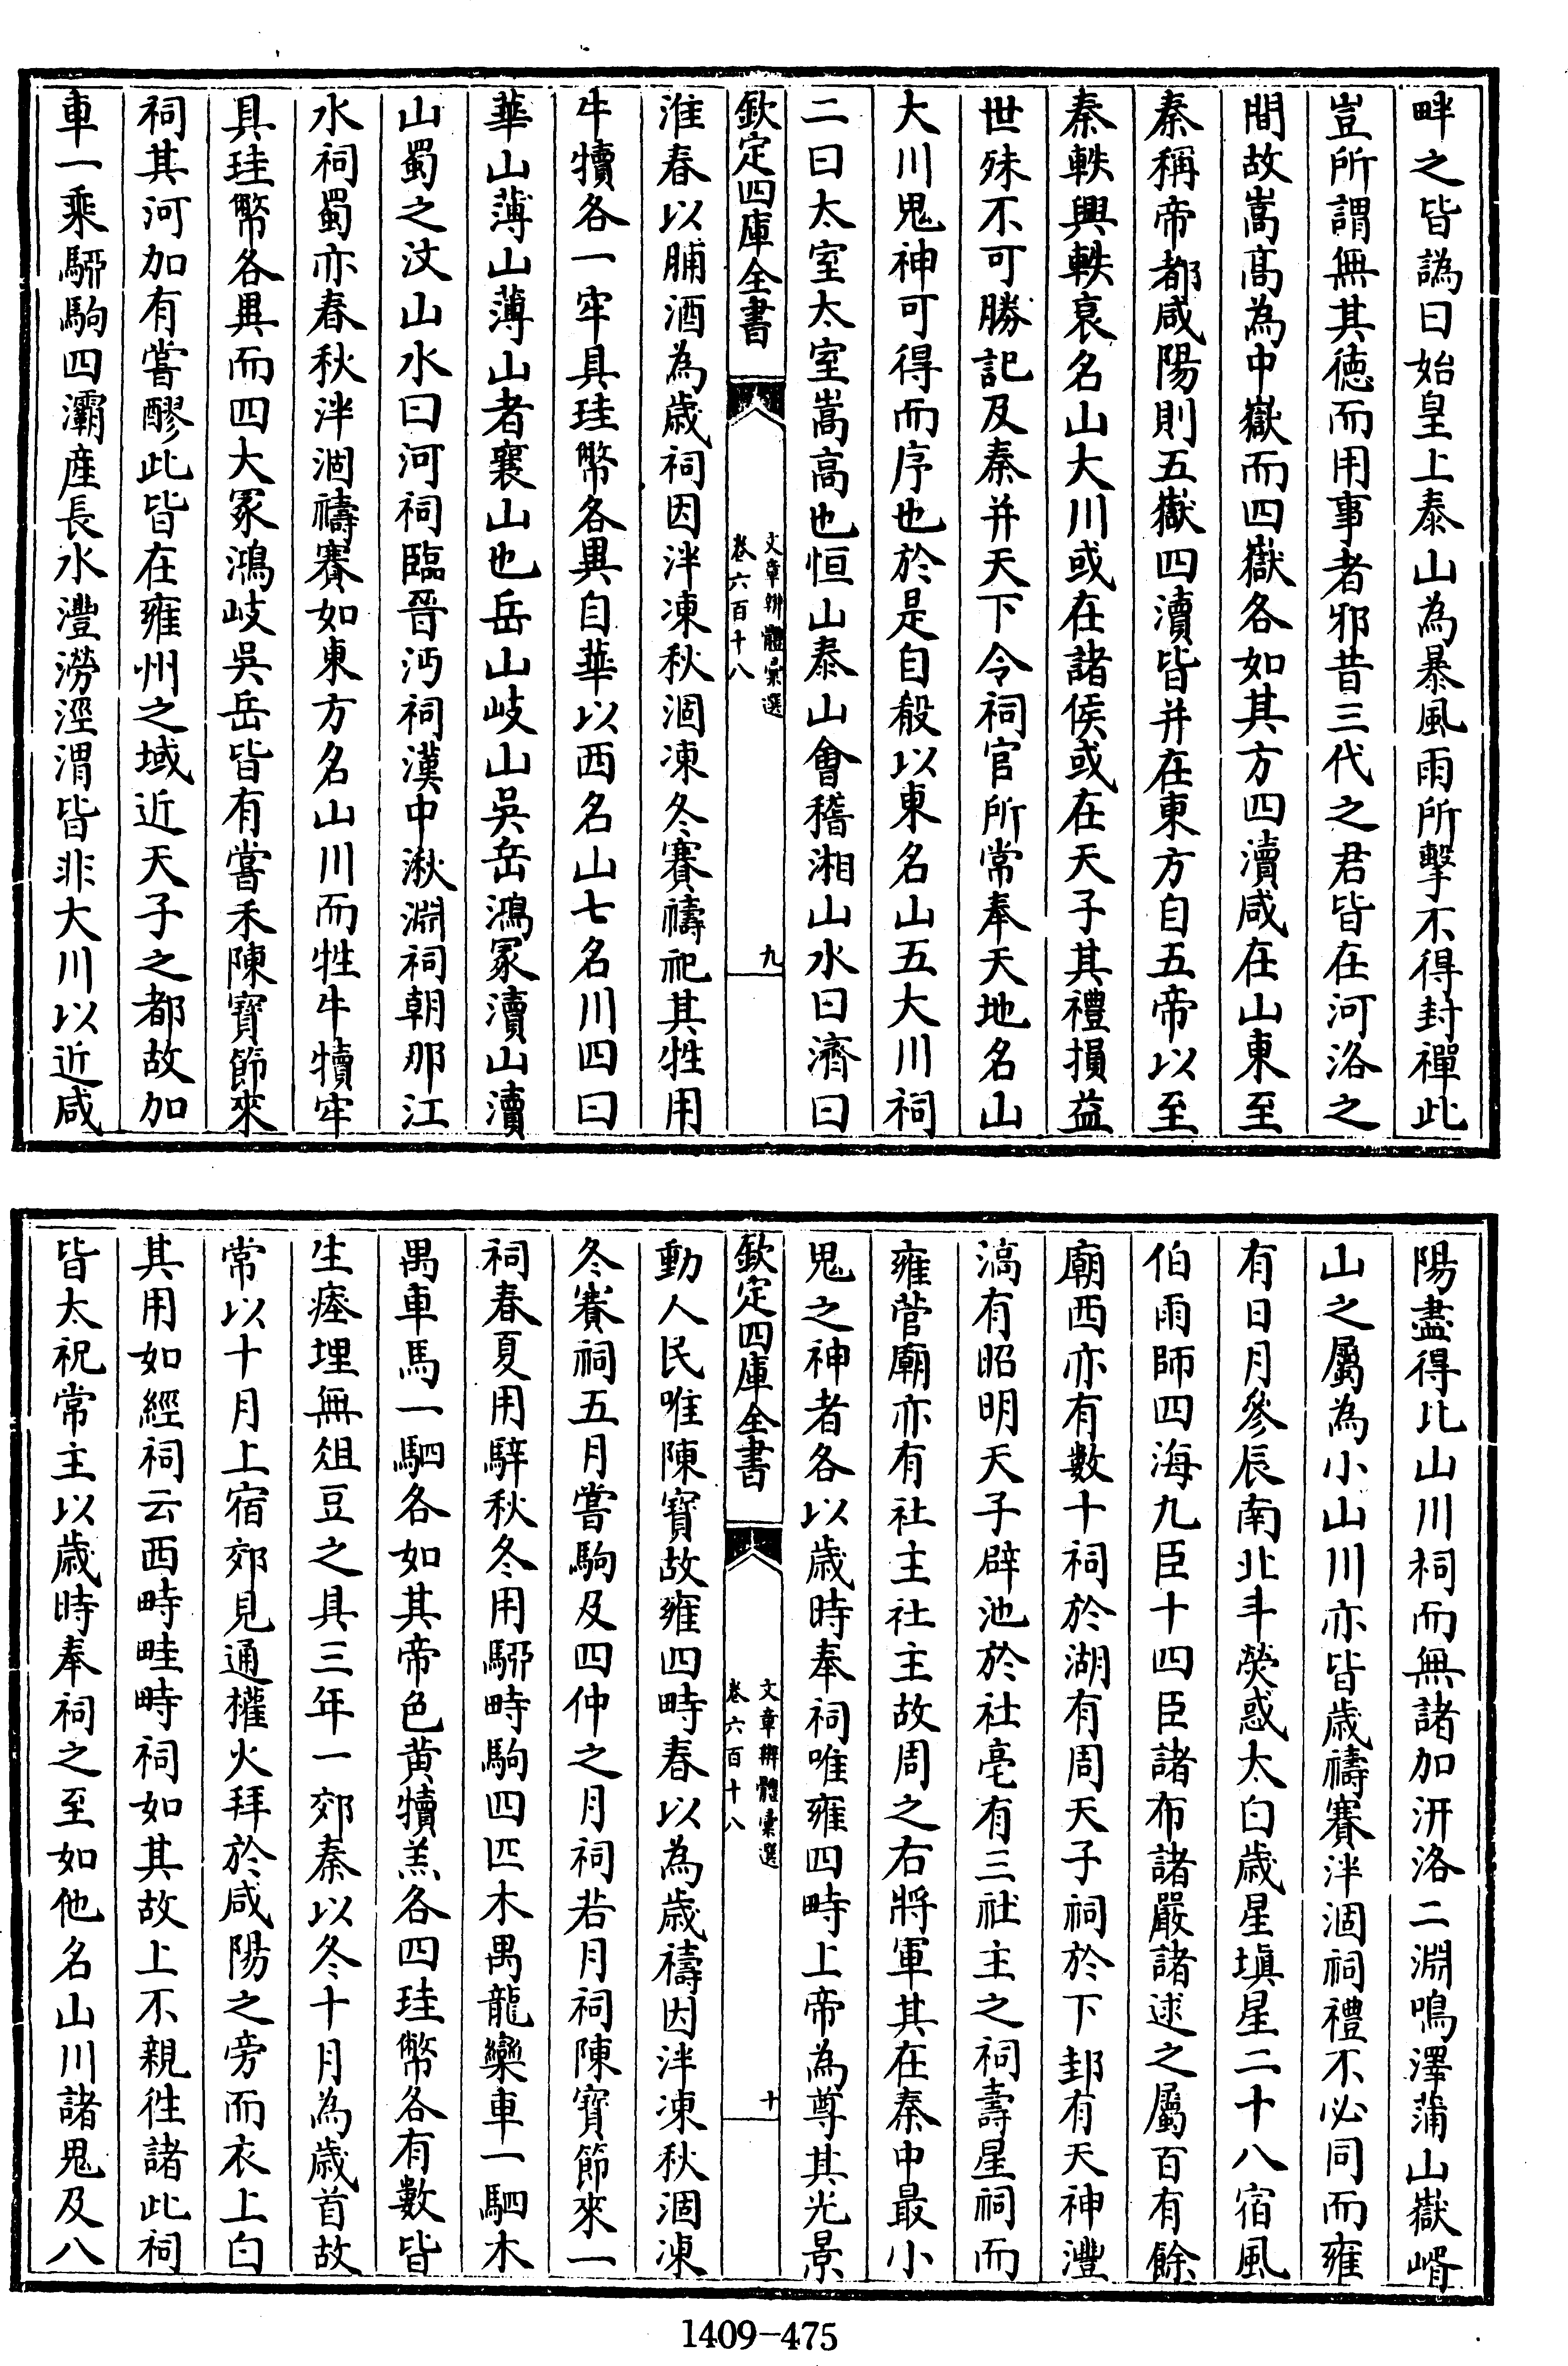 畔之皆譌曰始皇上泰山為暴風雨所擊不得封禪此
豈所謂無其徳而用事者邪昔三代之君皆在河洛之
間故嵩髙為中嶽而四嶽各如其方四瀆咸在山東至
秦稱帝都咸陽則五嶽四瀆皆并在東方自五帝以至
秦軼興軼衰名山大川或在諸侯或在天子其禮損益
世殊不可勝記及秦并天下令祠官所常奉天地名山
大川鬼神可得而序也於是自殽以東名山五大川祠
二曰太室太室嵩高也恒山泰山會稽湘山水曰濟曰
欽定四庫全書
文章辨體彙選
卷六百十八
九
淮春以脯酒為歲祠因泮凍秋涸凍冬賽禱祀其牲用
牛犢各一牢具珪幣各異自華以西名山七名川四曰
華山薄山薄山者襄山也岳山岐山吳岳鴻冢瀆山瀆
山蜀之汶山水曰河祠臨晉沔祠漢中湫淵祠朝那江
水祠蜀亦春秋泮涸禱賽如東方名山川而牲牛犢牢
具珪幣各異而四大冢鴻岐吳岳皆有嘗禾陳寶節來
祠其河加有嘗醪此皆在雍州之域近天子之都故加
車一乘駵駒四灞産長水灃澇涇渭皆非大川以近咸
陽盡得比山川祠而無諸加汧洛二淵鳴澤蒲山嶽㟭
山之屬為小山川亦皆歲禱賽泮涸祠禮不必同而雍
有日月參辰南北斗熒惑太白歲星塡星二十八宿風
伯雨師四海九臣十四臣諸布諸嚴諸逑之屬百有餘
廟西亦有數十祠於湖有周天子祠於下邽有天神灃
滈有昭明天子辟池於社亳有三社主之祠壽星祠而
雍菅廟亦有社主社主故周之右將軍其在秦中最小
鬼之神者各以歲時奉祠唯雍四畤上帝為尊其光景
欽定四庫全書
文章辨體彙選
卷六百十八
十
動人民唯陳寶故雍四畤春以為歲禱因泮凍秋涸凍
冬賽祠五月嘗駒及四仲之月祠若月祠陳寶節來一
祠春夏用騂秋冬用駵畤駒四匹木禺龍欒車一駟木
禺車馬一駟各如其帝色黄犢羔各四珪幣各有數皆
生瘞埋無俎豆之具三年一郊秦以冬十月為歲首故
常以十月上宿郊見通權火拜於咸陽之旁而衣上白
其用如經祠云西畤畦畤祠如其故上不親徃諸此祠
皆太祝常主以歲時奉祠之至如他名山川諸鬼及八
1409-475